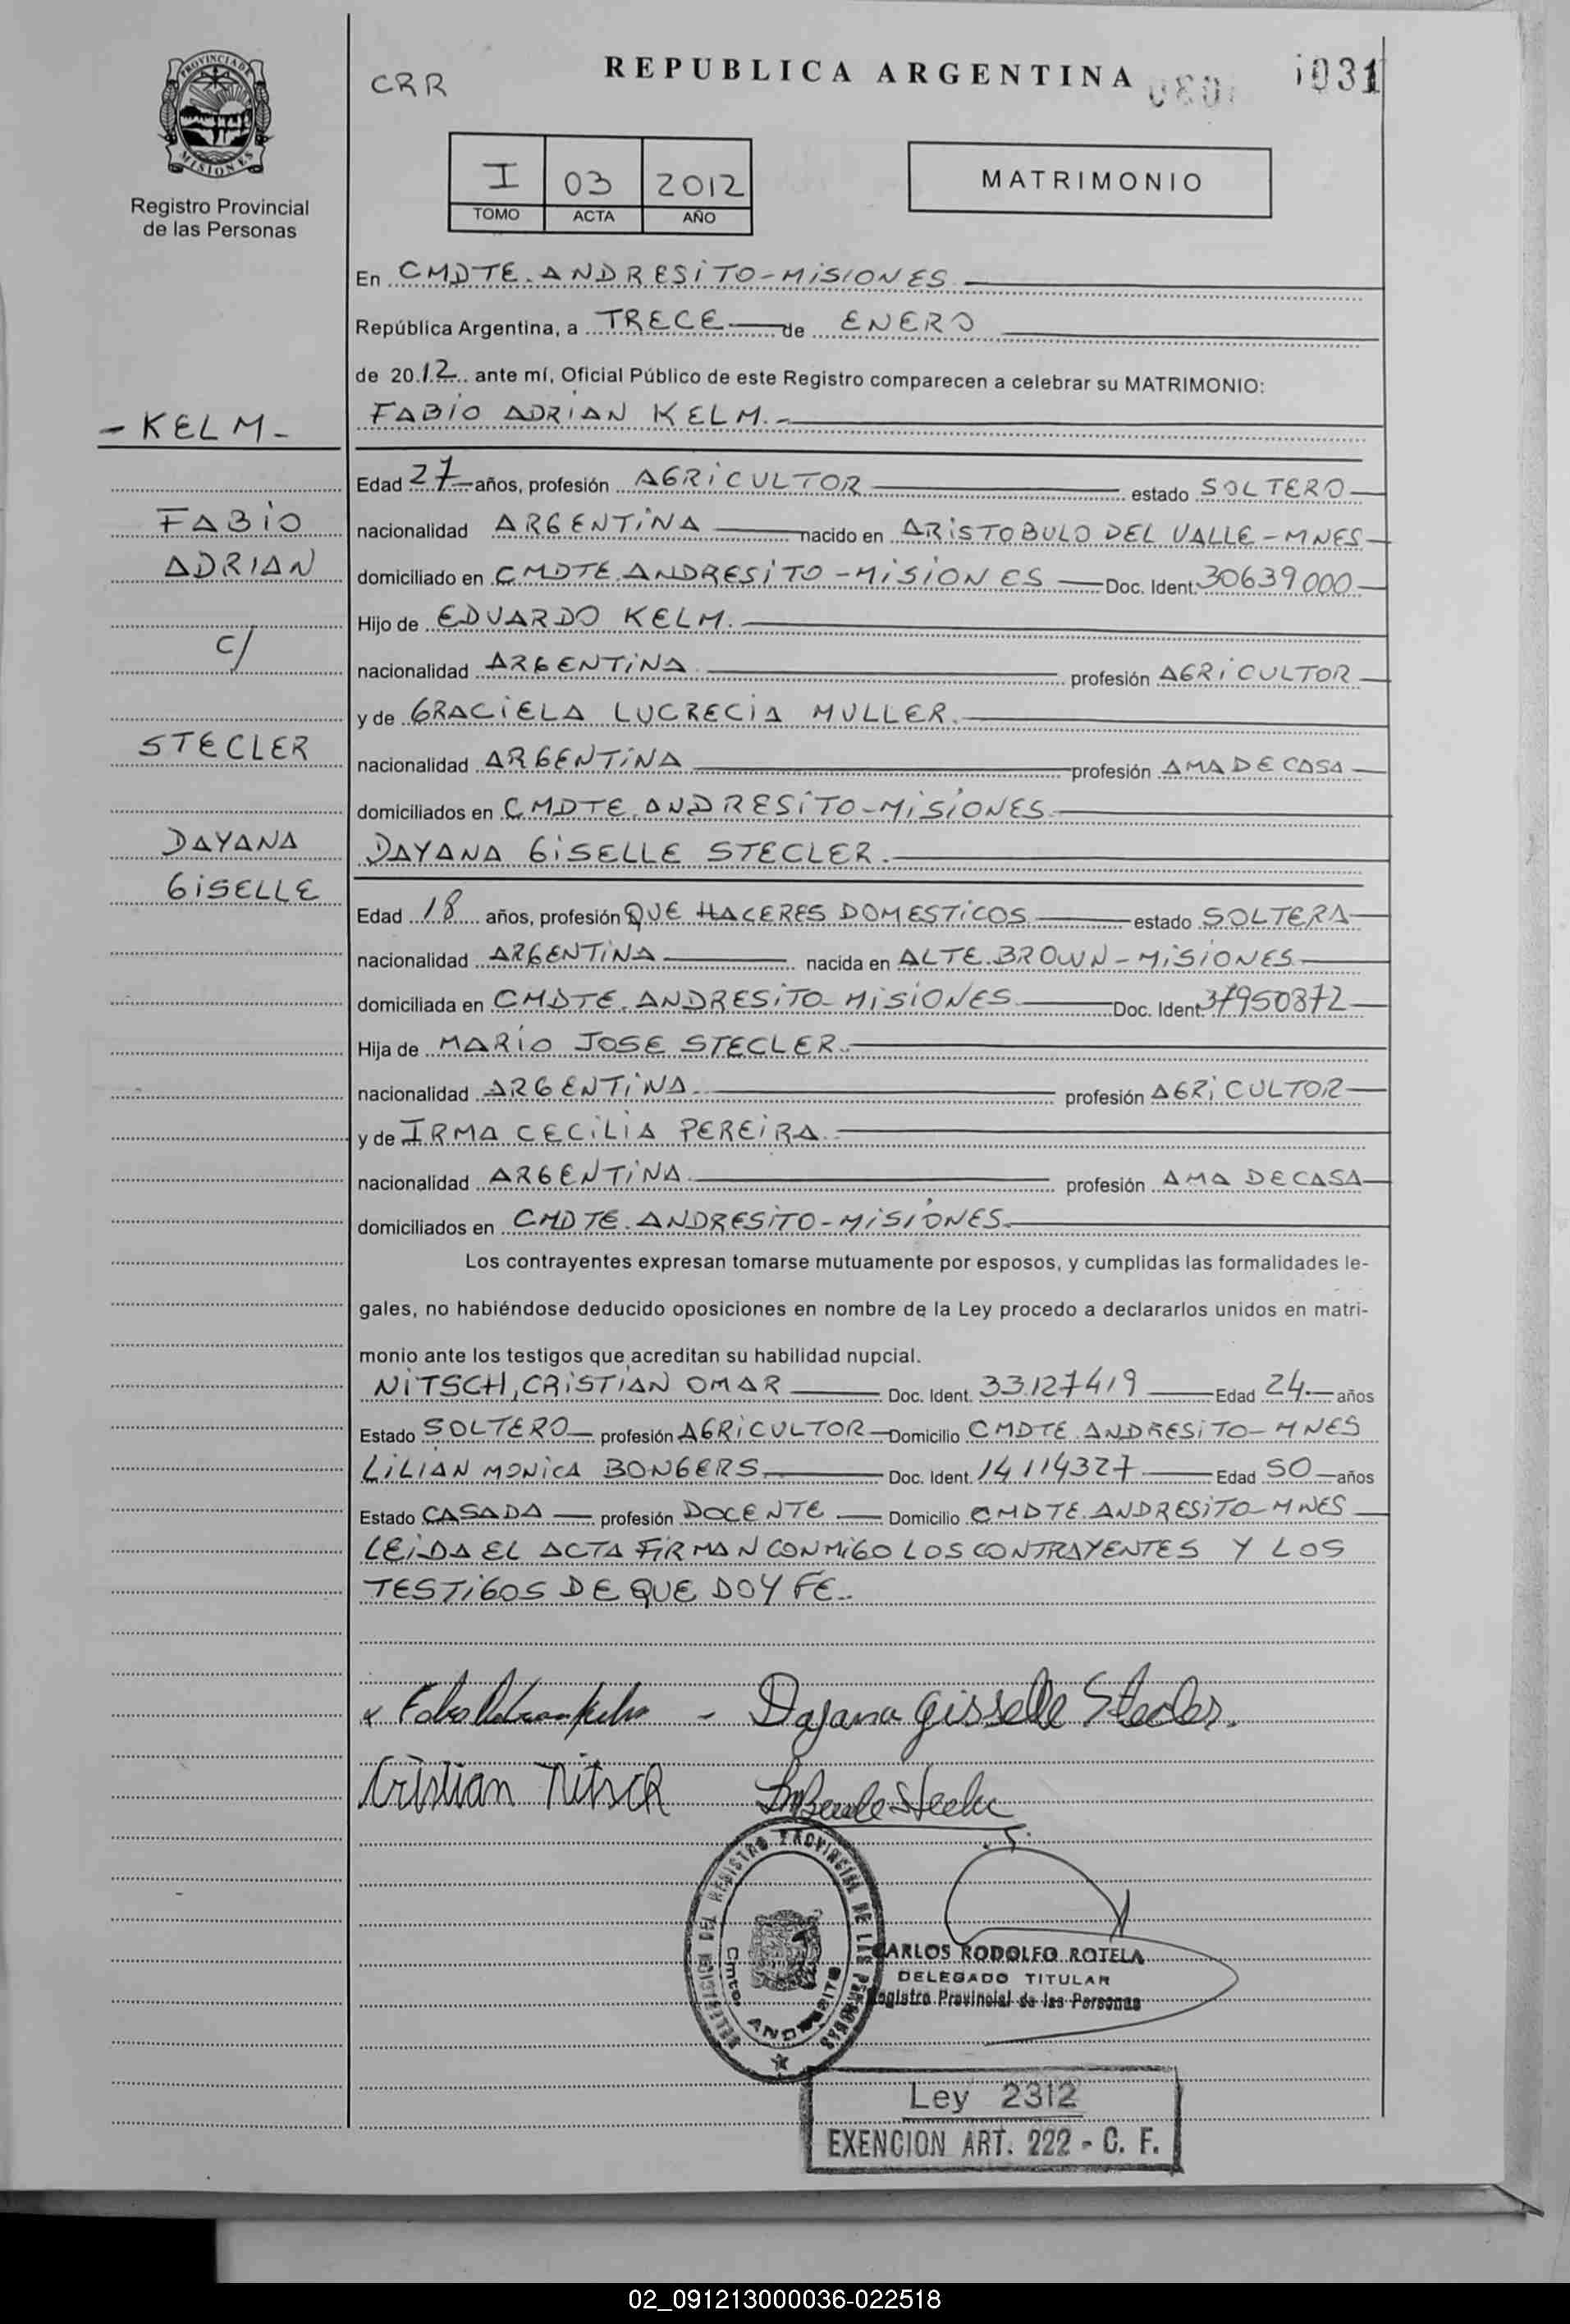 REPUBLICA ARGENTINA
1031
CRR
PROVINCIA DE
MISIONES
Registro Provincial
de las Personas
I 03 2012
TOMO ACTA AÑO
MATRIMONIO
En CMDTE. ANDRESITO-MISIONES
República Argentina, a TRECE de ENERO
de 2012 ante mí, Oficial Público de este Registro comparecen a celebrar su MATRIMONIO:
- KELM -
FABIO ADRIAN KELM.-
Edad 27 años, profesión AGRICULTOR estado SOLTERO
FABIO
nacionalidad ARGENTINA nacido en ARISTOBULO DEL VALLE-MNES
ADRIAN
domiciliado en CMDTE. ANDRESITO-MISIONES Doc. Ident. 30639000
Hijo de EDUARDO KELM.
C/
nacionalidad ARGENTINA profesión AGRICULTOR
y de GRACIELA LUCRECIA MULLER.
STECLER
nacionalidad ARGENTINA profesión AMA DE CASA
domiciliados en CMDTE. ANDRESITO-MISIONES
DAYANA
DAYANA GISELLE STECLER.
GISELLE
Edad 18 años, profesión QUE HACERES DOMESTICOS estado SOLTERA
nacionalidad ARGENTINA nacida en ALTE. BROWN-MISIONES
domiciliada en CMDTE. ANDRESITO-MISIONES Doc. Ident 37950872
Hija de MARIO JOSE STECLER.
nacionalidad ARGENTINA profesión AGRICULTOR
y de IRMA CECILIA PEREIRA.
nacionalidad ARGENTINA profesión AMA DE CASA
domiciliados en CMDTE. ANDRESITO-MISIONES
Los contrayentes expresan tomarse mutuamente por esposos, y cumplidas las formalidades le-
gales, no habiéndose deducido oposiciones en nombre de la Ley procedo a declararlos unidos en matri-
monio ante los testigos que acreditan su habilidad nupcial.
NITSCH, CRISTIAN OMAR Doc. Ident. 33.127419 Edad 24 años
Estado SOLTERO profesión AGRICULTOR Domicilio CMDTE. ANDRESITO-MNES
LILIAN MONICA BONGERS Doc. Ident. 14114327 Edad 50 años
Estado CASADA profesión DOCENTE Domicilio CMDTE. ANDRESITO-MNES
LEIDA EL ACTA FIRMAN CONMIGO LOS CONTRAYENTES Y LOS
TESTIGOS DE QUE DOY FE.
Dajana Gisselle Stecler.
Cristian Nitsch
DELEGACION DEL REGISTRO PROVINCIAL DE LAS PERSONAS
Cmte. ANDRESITO
CARLOS RODOLFO ROTELA
DELEGADO TITULAR
Registro Provincial de las Personas
Ley 2312
EXENCION ART. 222 - C. F.
02_091213000036-022518